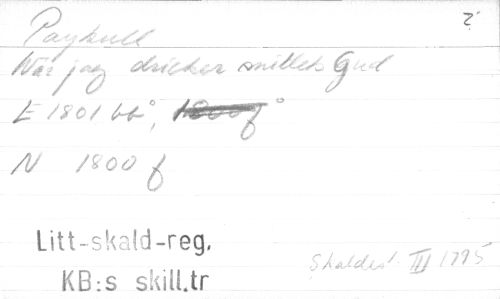 Paykull
När jag dricker snillets Gud
E 1801 bb°, 1800f°
N 1800 f
Litt-skald-reg.
KB:s skill.tr
Skaldest. III 1795